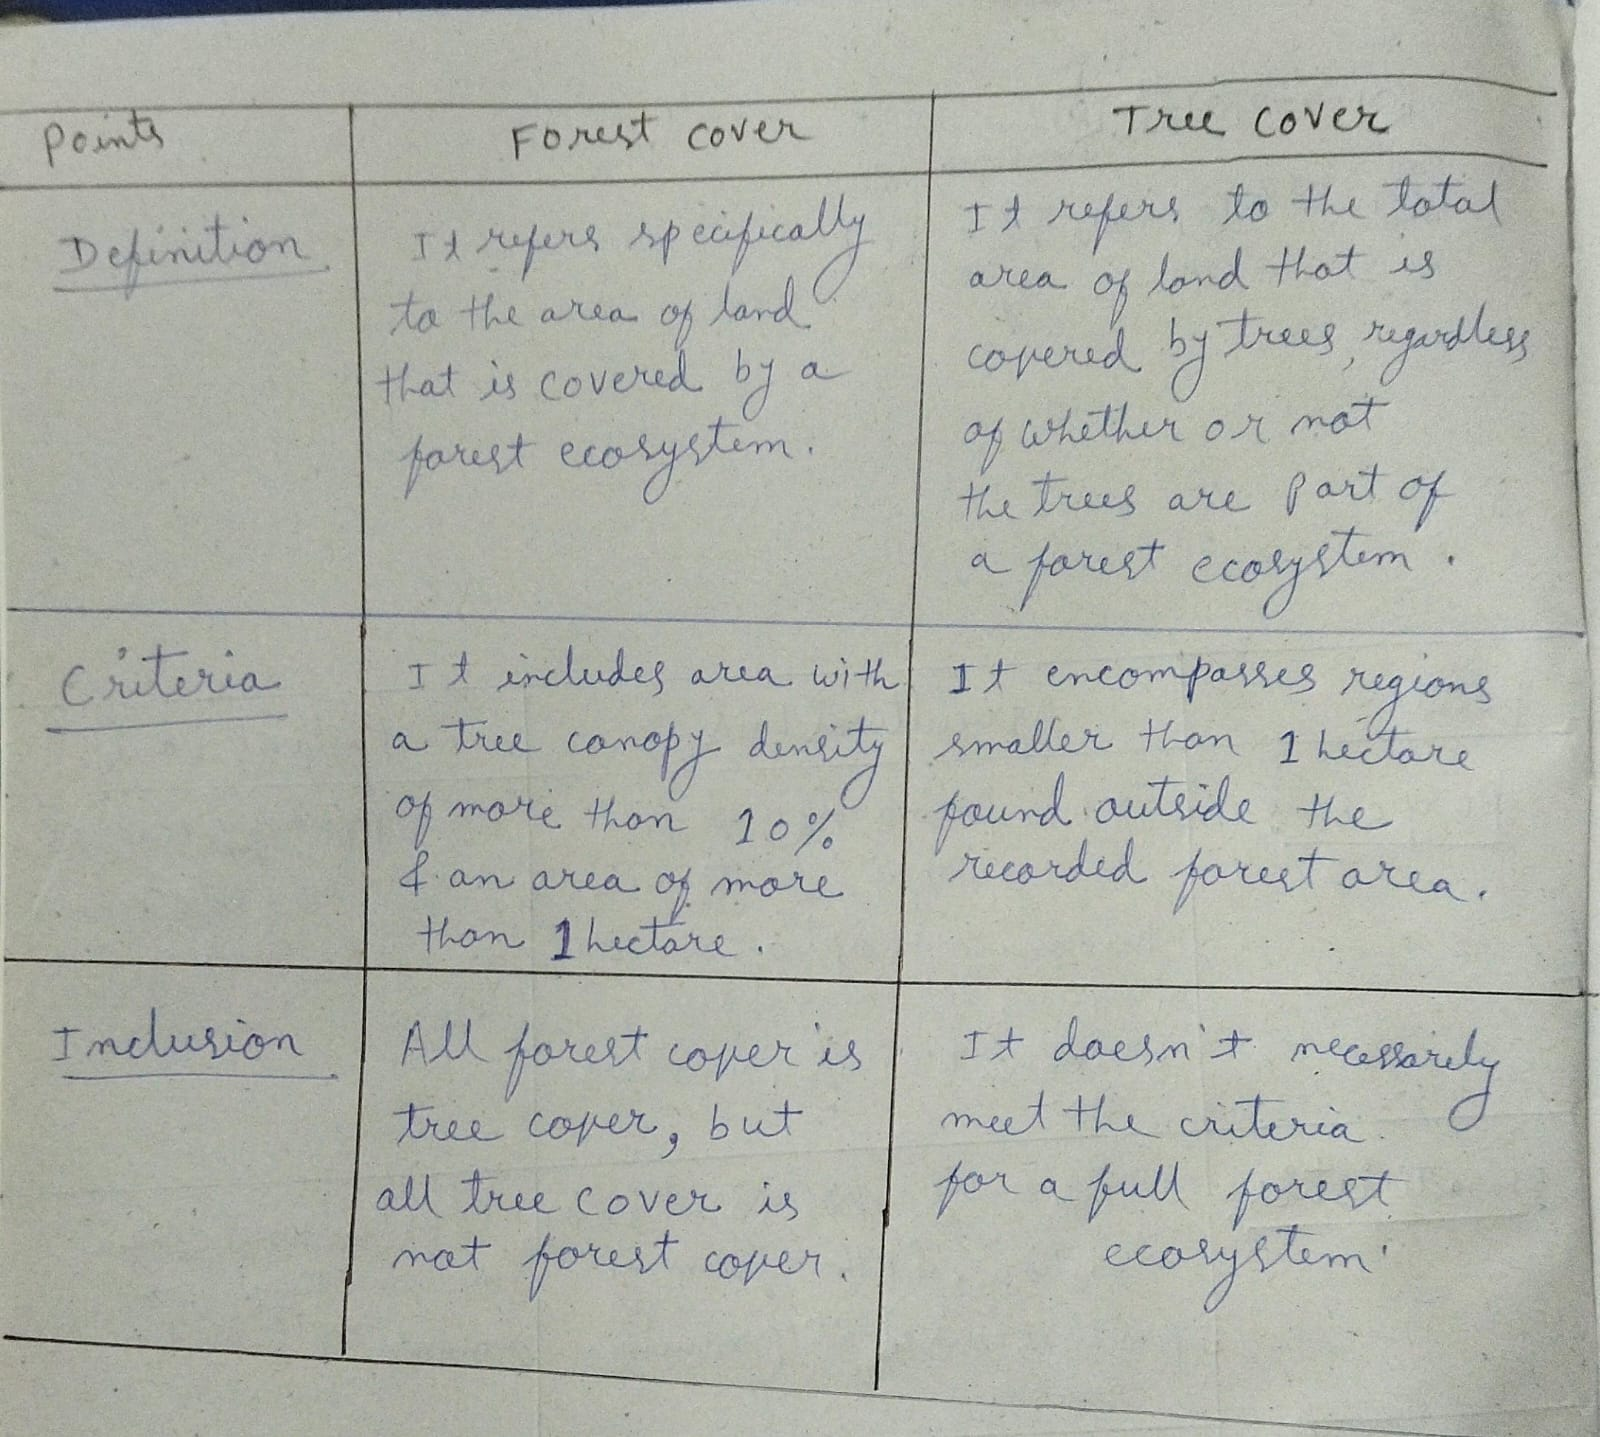 Points
Forest cover
Tree cover
Definition
It refers specifically
to the area of land
that is covered by a
forest ecosystem.
It refers to the total
area of land that is
covered by trees, regardless
of whether or not
the trees are part of
a forest ecosystem.
Criteria
It includes area with
a tree canopy density
of more than 10%
& an area of more
than 1 hectare.
It encompasses regions
smaller than 1 hectare
found outside the
recorded forest area.
Inclusion
All forest cover is
tree cover, but
all tree cover is
not forest cover.
It doesn't necessarily
meet the criteria
for a full forest
ecosystem.